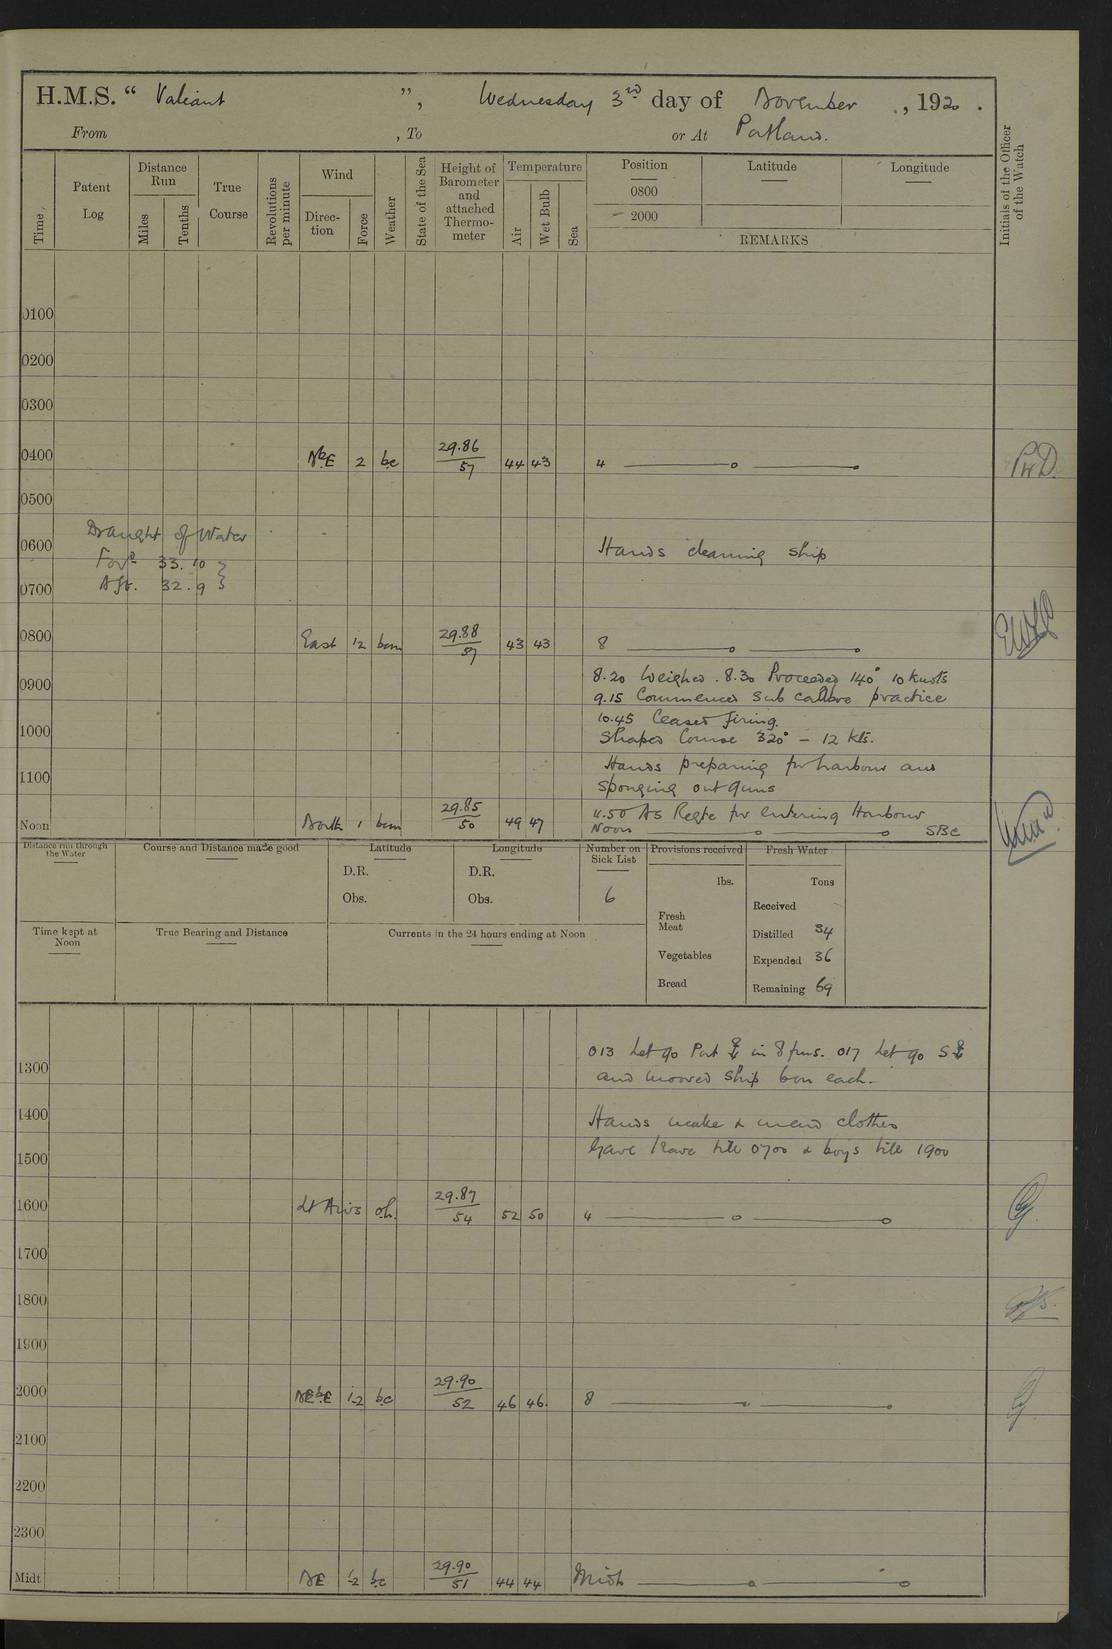 H.M.S. “ Valiant ”, Wednesday 3rd day of November , 1920 .
From , To or At Portland.
Time Patent Log Distance Run Miles Tenths True Course Revolutions per minute Wind Direc-tion Force Weather State of the Sea Height of Barometer and attached Thermo-meter Temperature Air Wet Bulb Sea Position 0800 2000 Latitude Longitude
REMARKS
Initials of the Officer of the Watch
0100
0200
0300
0400 NbE 2 bc 29.86 / 57 44 43 4
0500
Draught of Water
0600 Hands cleaning ship
Ford 33.10
Aft. 32.9
0700
0800 East 1/2 bcm 29.88 / 57 43 43 8
8.20 Weighed. 8.30 Proceeded 140° 10 knots
0900
9.15 Commenced Sub calibre practice
10.45 Ceased firing.
1000
Shaped Course 320° - 12 kts.
Hands preparing for harbour and
1100
sponging out guns
11.50 As Reqte for entering Harbour
Noon North 1 bcm 29.85 / 50 49 47 Noon SBC
Distance run through the Water Course and Distance made good Latitude Longitude Number on Sick List Provisions received Fresh Water
D.R. D.R. lbs. Tons
Obs. Obs. 6 Received
Fresh Meat
Time kept at Noon True Bearing and Distance Currents in the 24 hours ending at Noon Distilled 34
Vegetables Expended 36
Bread Remaining 69
013 Let go Port ⚓ in 8 fms. 017 Let go S ⚓
1300
and moored ship bon each.
1400 Hands make & mend clothes
Gave leave till 0700 & boys till 1900
1500
1600 Lt Airs o.h. 29.87 / 54 52 50 4
1700
1800
1900
2000 NEbE 1-2 bc 29.90 / 52 46 46 8
2100
2200
2300
Midt NE 1-2 bc 29.90 / 51 44 44 Midt